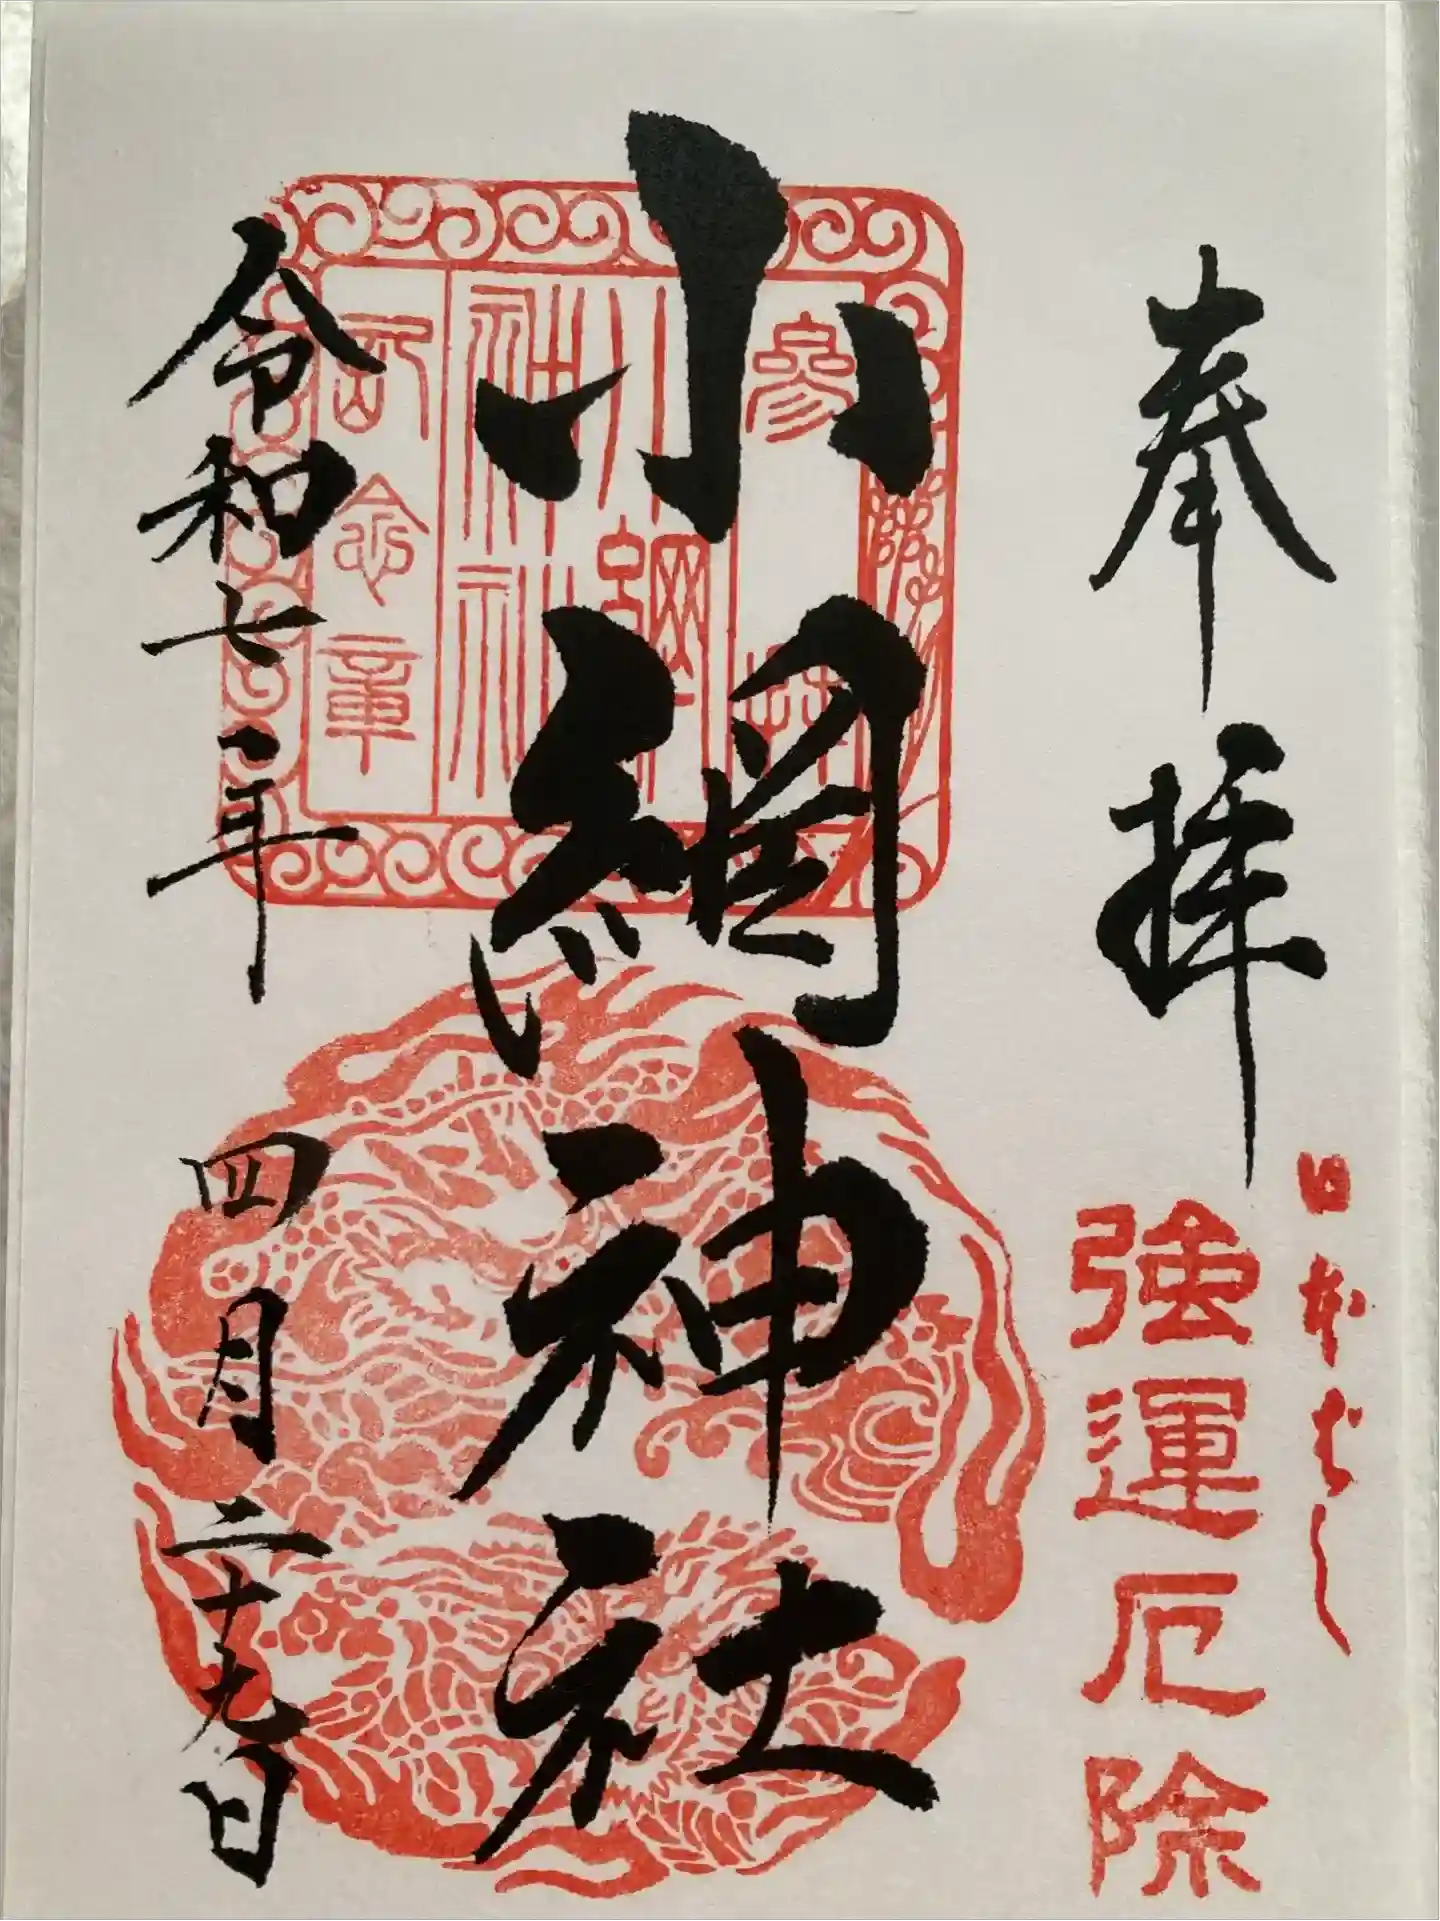 奉拝
日本ばし
強運厄除
小網神社
参拝
小網
神社
記念章
令和七年
四月二十九日